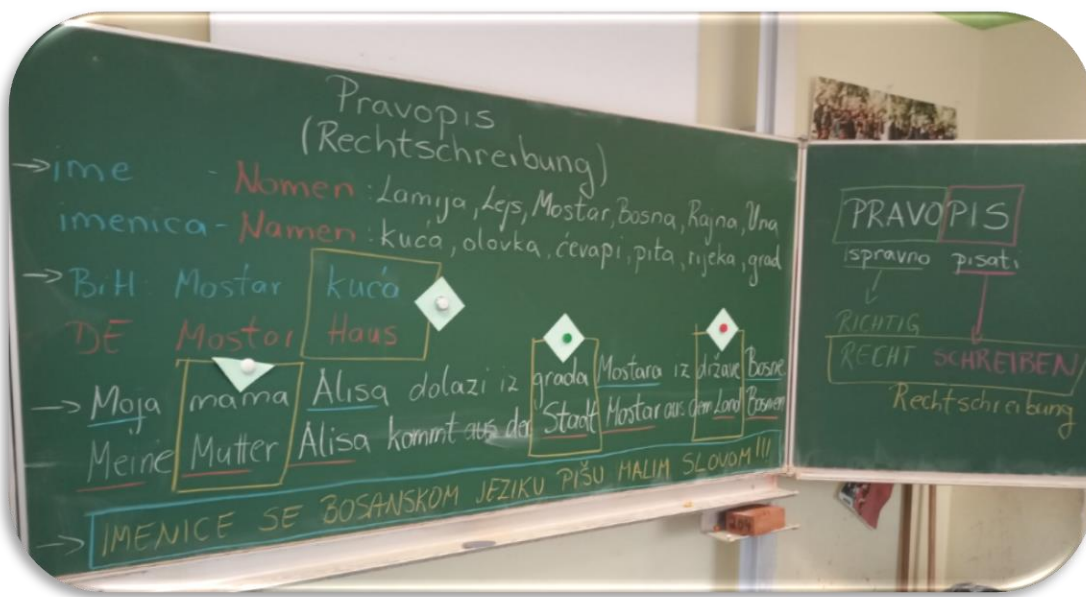 Pravopis
(Rechtschreibung)
→ ime - Nomen: Lamija, Lejs, Mostar, Bosna, Rajna, Una
imenica - Namen: kuća, olovka, ćevapi, pita, rijeka, grad
→ BiH: Mostar kuća
DE Mostar Haus
→ Moja mama Alisa dolazi iz grada Mostara iz države Bosne
Meine Mutter Alisa kommt aus der Stadt Mostar aus dem Land Bosnien
→ IMENICE SE BOSANSKOM JEZIKU PIŠU MALIM SLOVOM!!!
PRAVOPIS
ispravno pisati
RICHTIG
RECHT SCHREIBEN
Rechtschreibung